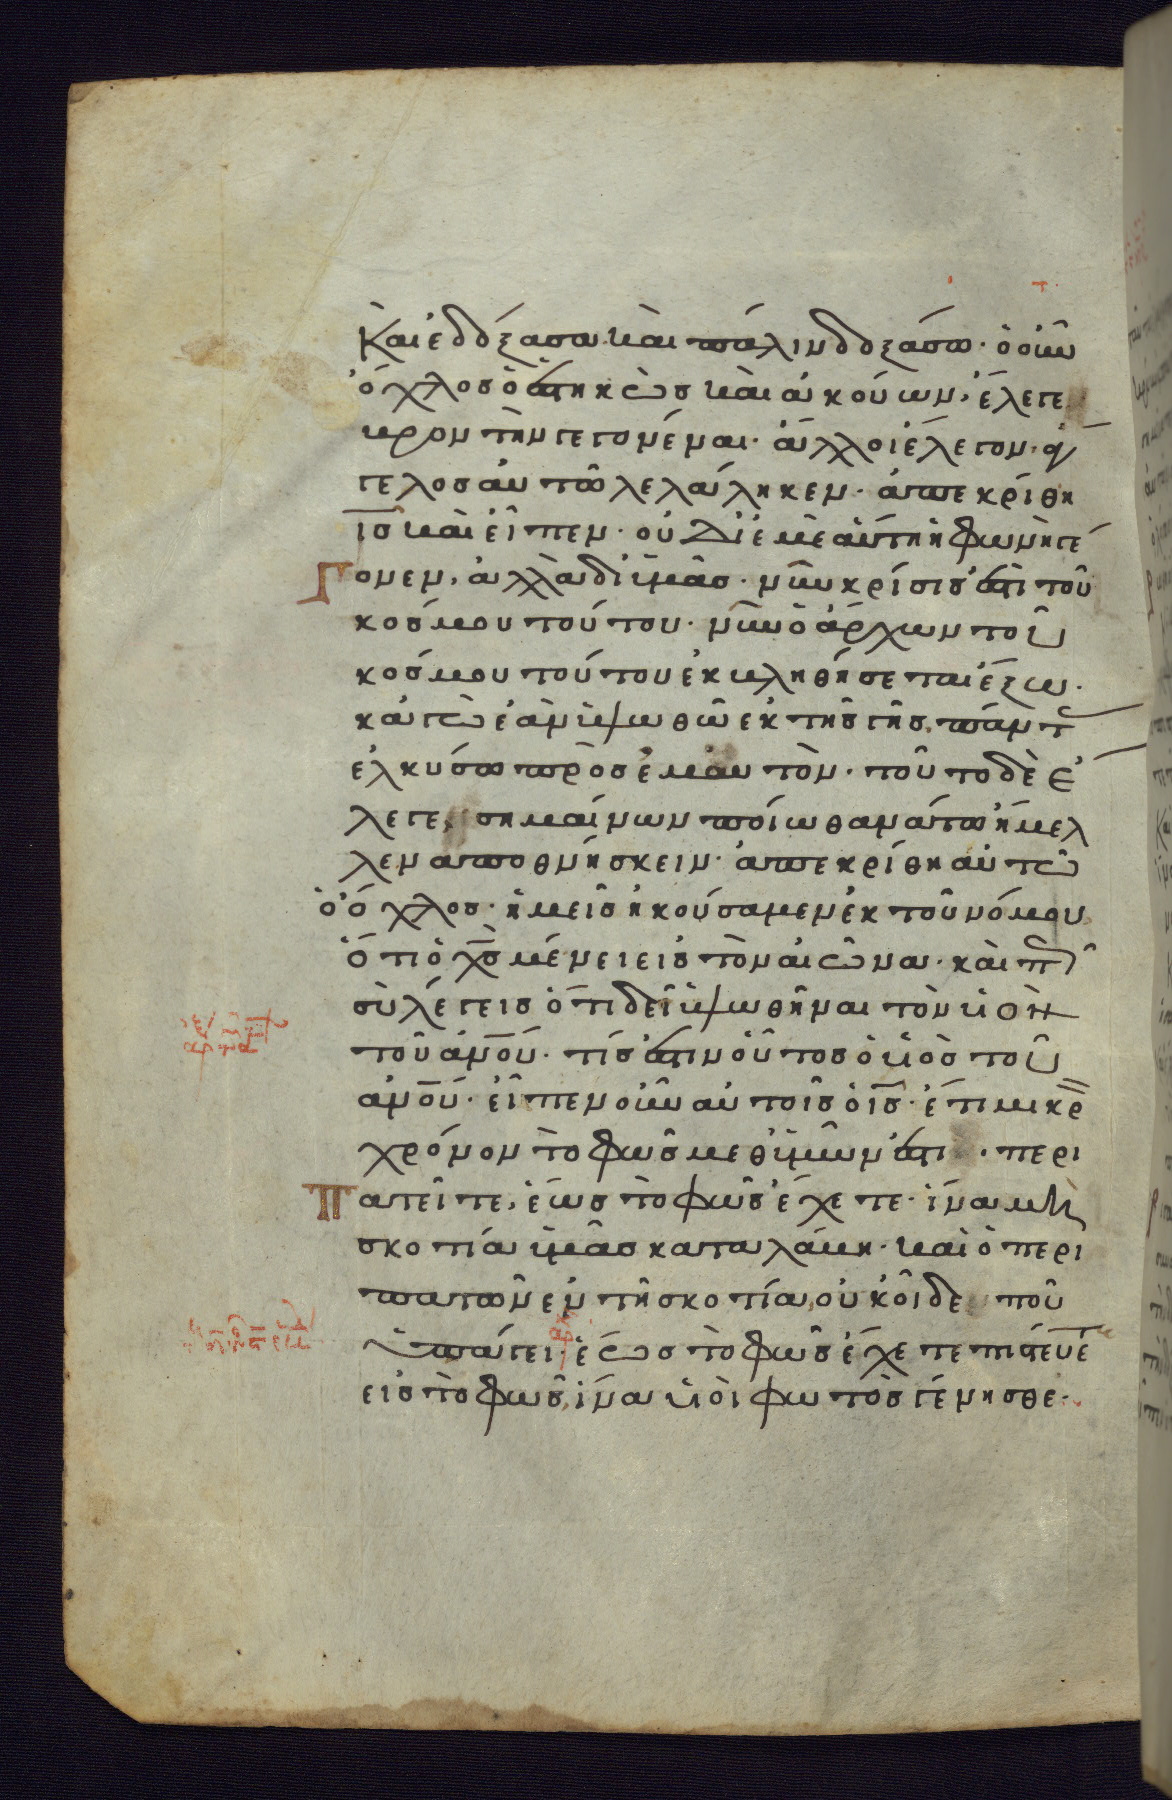 Καὶ ἐδόξασα καὶ πάλιν δοξάσω· ὁ οὖν
ὄχλος ὁ ἑστηκὼς καὶ ἀκούων, ἔλεγε
βροντὴν γεγονέναι· ἄλλοι ἔλεγον· ἄγ
γελος αὐτῶ λελάληκεν· ἀπεκρίθη
ἰς καὶ εἶπεν· οὐ δι' ἐμὲ αὕτη ἡ φωνὴ γέ
Γονεν, ἀλλὰ δι' ὑμᾶς· νῦν κρίσις ἐστὶ τοῦ
κόσμου τούτου· νῦν ὁ ἄρχων τοῦ
κόσμου τούτου ἐκβληθήσεται ἔξω·
κἀγὼ ἐὰν ὑψωθῶ ἐκ τῆς γῆς, πάντ
ἑλκύσω πρὸς ἐμαυτόν· τοῦτο δὲ ἔ
λεγε, σημαίνων ποίω θανάτω ἤμελ
λεν ἀποθνήσκειν· ἀπεκρίθη αὐτῶ
ὁ ὄχλος· ἡμεῖς ἠκούσαμεν ἐκ τοῦ νόμου
ὅτι ὁ χς μένει εἰς τὸν αἰῶνα· καὶ πῶς
σὺ λέγεις ὅτι δεῖ ὑψωθῆναι τὸν υἱὸν
τοῦ ἀνου· τίς ἐστιν οὗτος ὁ υἱὸς τοῦ
ἀνου· εἶπεν οὖν αὐτοῖς ὁ ἰς· ἔτι μικρ
χρόνον τὸ φῶς μεθ' ὑμῶν ἐστι· περι
Πατεῖτε, ἕως τὸ φῶς ἔχετε· ἵνα μὴ
σκοτία ὑμᾶς καταλάβη· καὶ ὁ περι
πατῶν ἐν τῆ σκοτία, οὐκ οἶδε ποῦ
ὑπάγει· ἕως τὸ φῶς ἔχετε πιστεύε
εἰς τὸ φῶς, ἵνα υἱοὶ φωτὸς γένησθε·